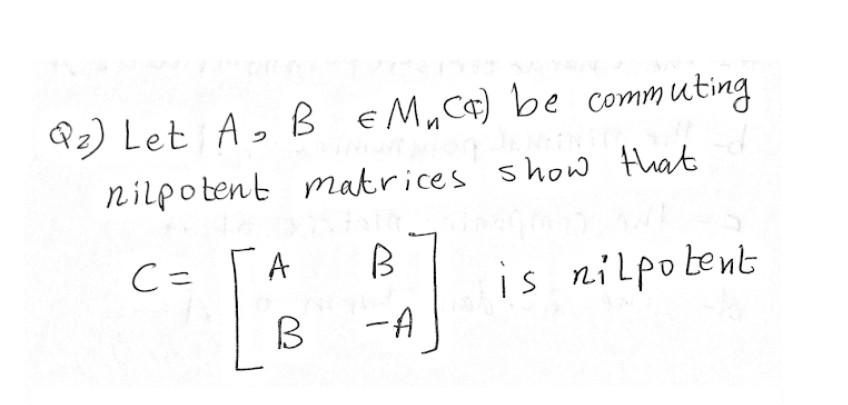 Q2) Let A, B ∈ Mn(ℂ) be commuting
nilpotent matrices show that
C = [ A B ] is nilpotent
[ B -A ]